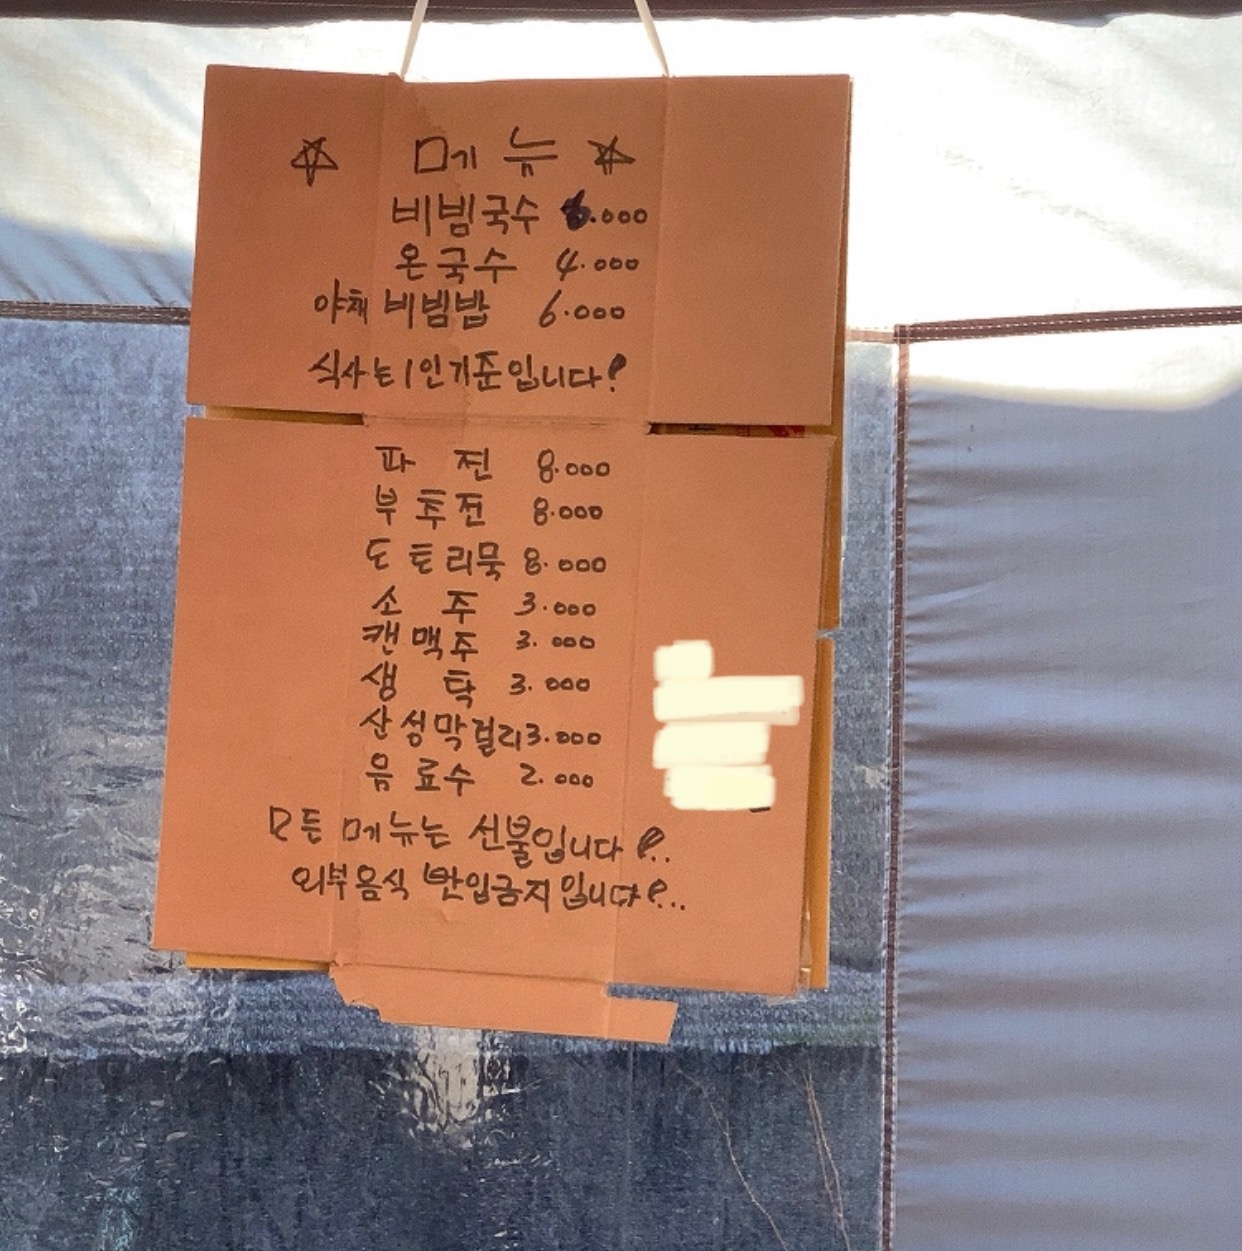 ☆ 메뉴 ☆
비빔국수 .000
온국수 4.000
야채 비빔밥 6.000
식사는 1인기준입니다!
파 전 8.000
부추전 8.000
도토리묵 8.000
소 주 3.000
캔맥주 3.000
생 탁 3.000
산성막걸리 3.000
음료수 2.000
모든 메뉴는 선불입니다!..
외부음식 반입금지입니다!...